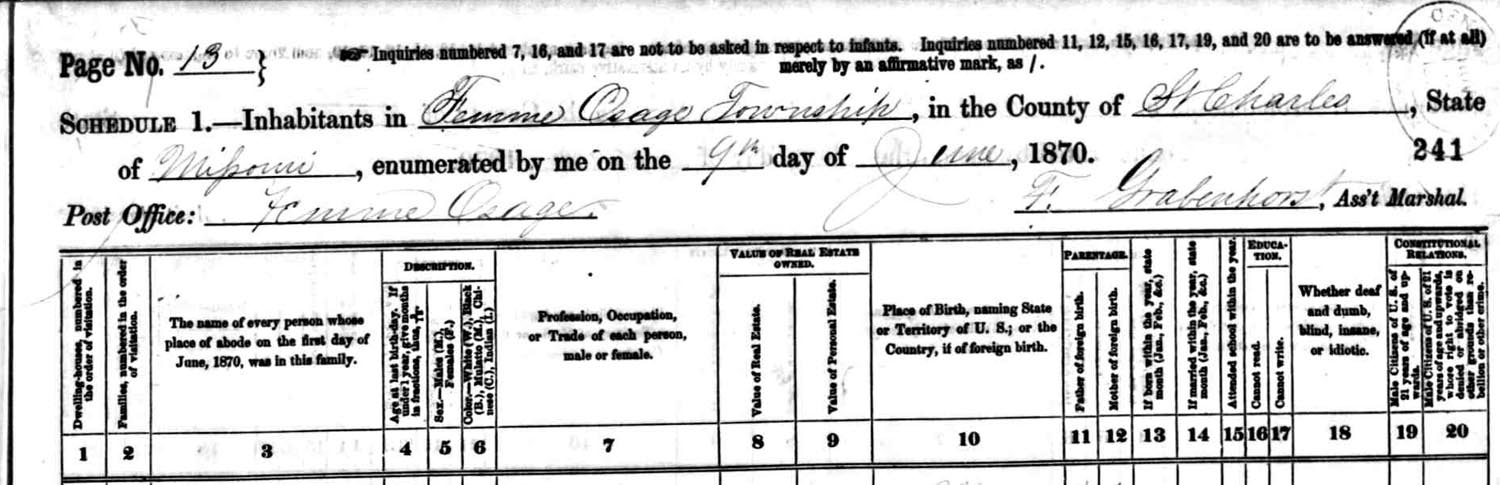 Page No. 13 }
☞ Inquiries numbered 7, 16, and 17 are not to be asked in respect to infants. Inquiries numbered 11, 12, 15, 16, 17, 19, and 20 are to be answered (if at all)
merely by an affirmative mark, as /.
SCHEDULE 1.—Inhabitants in Femme Osage Township, in the County of St Charles, State
of Missouri, enumerated by me on the 9th day of June, 1870.
241
Post Office: Femme Osage.
F. Grabenhorst, Ass't Marshal.
Dwelling-houses, numbered in
the order of visitation.
Families, numbered in the order
of visitation.
The name of every person whose
place of abode on the first day of
June, 1870, was in this family.
DESCRIPTION.
Age at last birth-day. If
under 1 year, give months
in fractions, thus, 3/12
Sex.—Males (M.),
Females (F.)
Color.—White (W.), Black
(B.), Mulatto (M.), Chi-
nese (C.), Indian (I.)
Profession, Occupation,
or Trade of each person,
male or female.
VALUE OF REAL ESTATE
OWNED.
Value of Real Estate.
Value of Personal Estate.
Place of Birth, naming State
or Territory of U. S.; or the
Country, if of foreign birth.
PARENTAGE.
Father of foreign birth.
Mother of foreign birth.
If born within the year, state
month (Jan., Feb., &c.)
If married within the year, state
month (Jan., Feb., &c.)
Attended school within the year.
EDUCA-
TION.
Cannot read.
Cannot write.
Whether deaf
and dumb,
blind, insane,
or idiotic.
CONSTITUTIONAL
RELATIONS.
Male Citizens of U. S. of
21 years of age and up-
wards.
Male Citizens of U. S. of 21
years of age and upwards,
whose right to vote is
denied or abridged on
other grounds than re-
bellion or other crime.
1 2 3 4 5 6 7 8 9 10 11 12 13 14 15 16 17 18 19 20